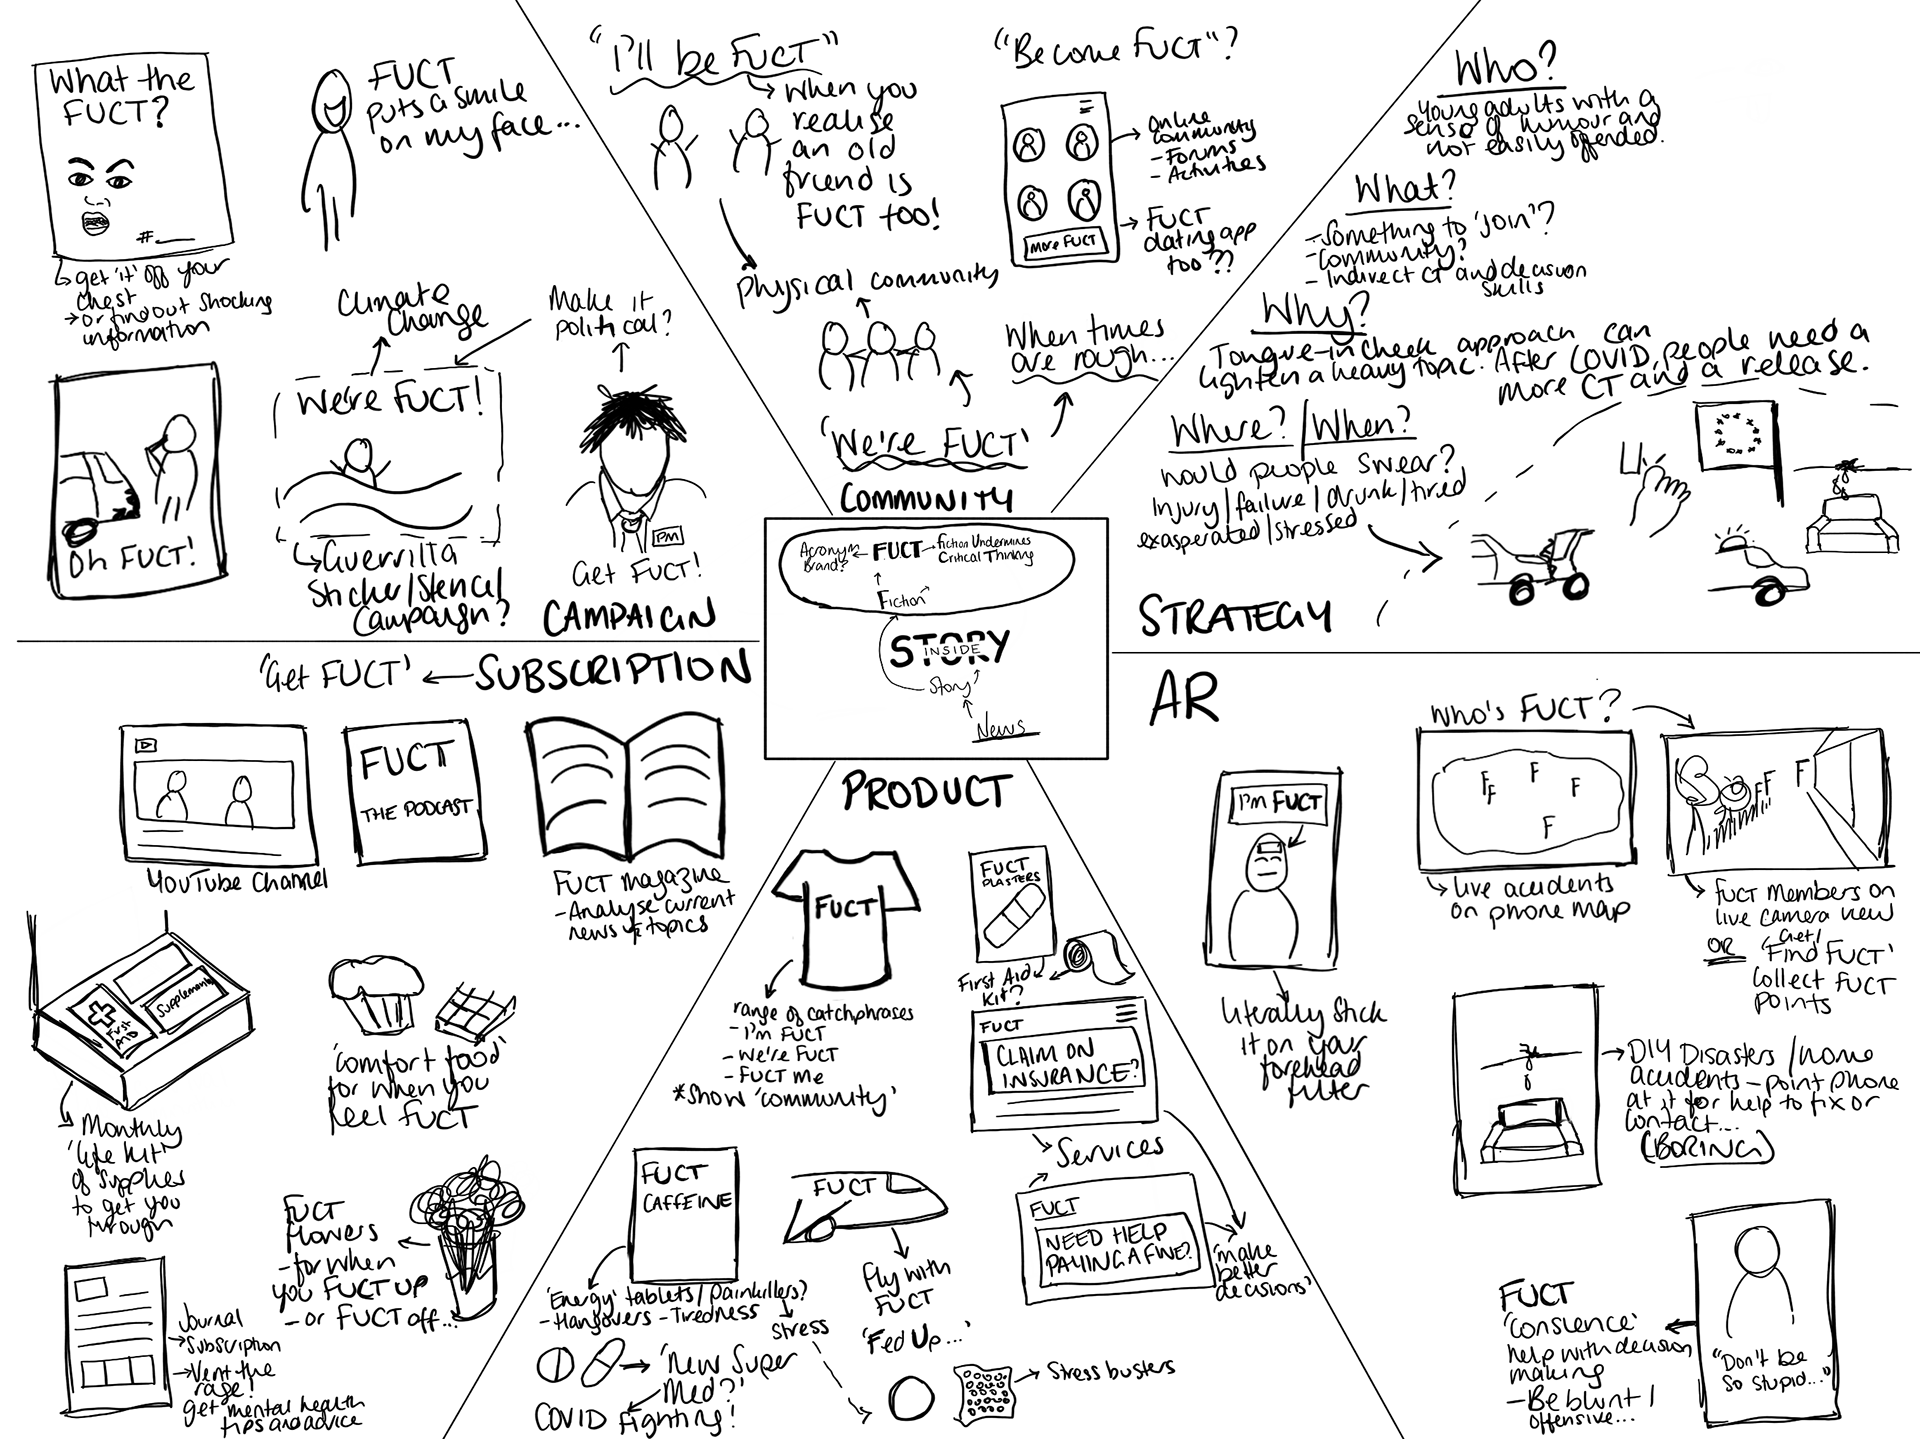 What the
FUCT?
#
get 'it' off your
chest
or find out shocking
information
FUCT
puts a smile
on my face...
Oh FUCT!
Climate
Change
We're FUCT!
Guerrilla
Sticker/Stencil
Campaign?
Make it
political?
PM
Get FUCT!
CAMPAIGN
"I'll be FUCT"
When you
realise
an old
friend is
FUCT too!
Physical community
"Become FUCT"?
More FUCT
Online
community
- Forums
- Activities
FUCT
dating app
too??
When times
are rough...
'We're FUCT'
COMMUNITY
Who?
Young adults with a
sense of humour and
not easily offended.
What?
- Something to 'join'?
- Community?
- Indirect CT and decision
skills
Why?
Tongue-in cheek approach can
lighten a heavy topic. After COVID, people need a
more CT and a release.
Where? / When?
Would people swear?
Injury/failure/drunk/tired
exasperated/stressed
STRATEGY
Acronym
Brand?
FUCT
Fiction Undermines
Critical Thinking
Fiction
STORY
INSIDE
Story
News
'Get FUCT' ← SUBSCRIPTION
YouTube Channel
FUCT
THE PODCAST
FUCT magazine
- Analyse current
news & topics
First
AID
Supplements
Monthly
'life kit'
of supplies
to get you
through
'comfort food'
for when you
feel FUCT
FUCT
flowers
- for when
you FUCT UP
- or FUCT off...
Journal
Subscription
Vent the
rage!
get mental health
tips and advice
PRODUCT
FUCT
range of catchphrases
- I'm FUCT
- We're FUCT
- FUCT Me
*Show 'community'
FUCT
PLASTERS
First Aid
Kit?
FUCT
CLAIM ON
INSURANCE?
Services
FUCT
NEED HELP
PAYING A FINE?
'make
better
decisions'
FUCT
CAFFEINE
'Energy' tablets/Painkillers?
- Hangovers - Tiredness
stress
'New Super
Med?'
COVID Fighting!
FUCT
Fly with
FUCT
'Fed Up...'
Stress busters
AR
I'm FUCT
Literally stick
it on your
forehead
filter
Who's FUCT?
F F F F F
live accidents
on phone map
F F F
FUCT members on
live camera view
OR 'Get/
Find FUCT'
Collect FUCT
points
DIY Disasters/home
accidents - point phone
at it for help to fix or
contact...
(BORING)
FUCT
'Conscience'
help with decision
making
- Be blunt/
offensive...
"Don't be
so stupid..."